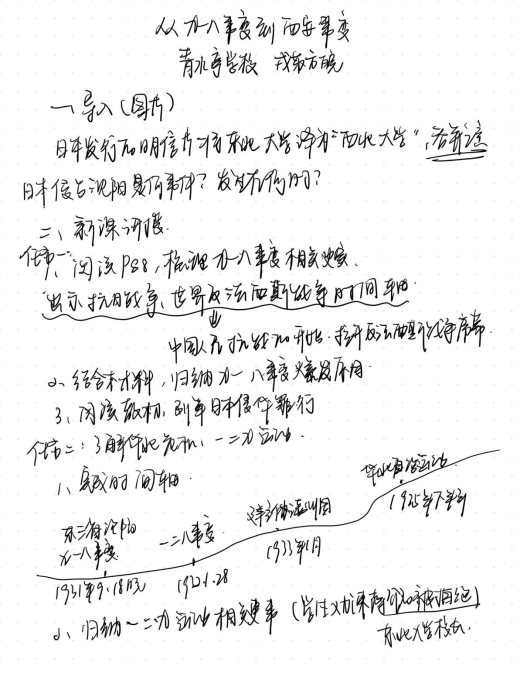 从九一八事变到西安事变
青水亭学校
一、导入（图片）
日本发行的明信片将东北大学译为“西北大学”，
日本侵占沈阳是何事件？发生在何时？
二、新课讲授
任务一：1、阅读P88，梳理九一八事变相关史实
出示抗日战争、世界反法西斯战争时间轴
⇓
中国人民抗战的开始，揭开反法西斯战争序幕
2、结合材料，归纳九一八事变爆发原因
3、阅读教材，列举日本侵华罪行
任务二：了解华北危机、一二九运动
1、完成时间轴
东三省沈阳 九一八事变 一二八事变 华北自治运动
1931年9.18日 1932.1.28 1933年1月 1935年下半年
2、归纳一二九运动相关史事（学生
东北大学校长